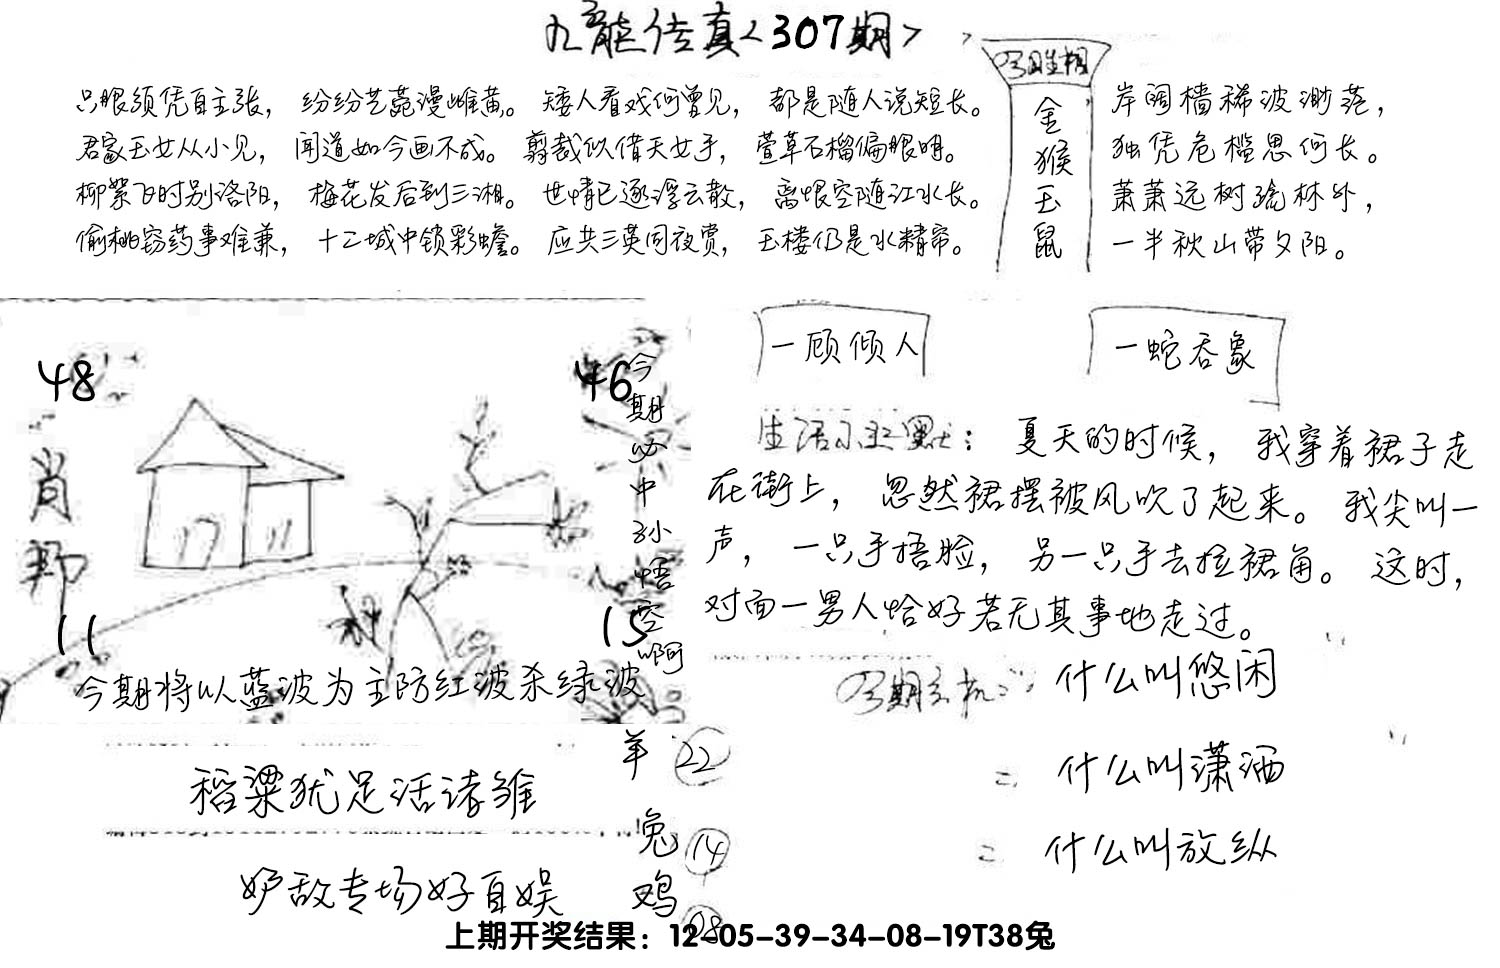 九龍传真<307期>
只眼须凭自主张，纷纷艺苑漫雌黄。矮人看戏何曾见，都是随人说短长。
君家玉女从小见，闻道如今画不成。剪裁似借天女手，萱草石榴偏眼明。
柳絮飞时别洛阳，梅花发后到三湘。世情已逐浮云散，离恨空随江水长。
偷桃窃药事难兼，十二城中锁彩蟾。应共三英同夜赏，玉楼仍是水精帘。
今日生相
金猴玉鼠
岸阔樯稀波渺茫，
独凭危槛思何长。
萧萧远树疏林外，
一半秋山带夕阳。
48
46
肖
11
15
今期必中孙悟空啊
今期将以蓝波为主防红波杀绿波
一顾倾人
一蛇吞象
生活小幽默：夏天的时候，我穿着裙子走
在街上，忽然裙摆被风吹了起来。我尖叫一
声，一只手捂脸，另一只手去拉裙角。这时，
对面一男人恰好若无其事地走过。
今期玄机：什么叫悠闲
什么叫潇洒
什么叫放纵
稻粱犹足活诸雏
妒敌专场好自娱
羊 22
兔 14
鸡 08
上期开奖结果：12-05-39-34-08-19T38兔